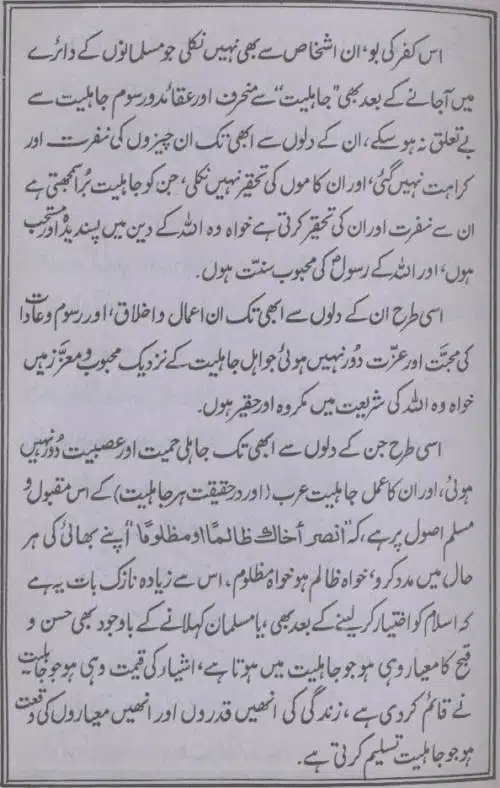 اس کفر کی بو، ان اشخاص سے بھی نہیں نکلی جو مسلمانوں کے دائرے
میں آجانے کے بعد بھی "جاہلیت" سے منحرف اور عقائد و رسوم جاہلیت سے
بے تعلق نہ ہوسکے، ان کے دلوں سے ابھی تک ان چیزوں کی نفرت اور
کراہت نہیں گئی، اور ان کاموں کی تحقیر نہیں نکلی، جن کو جاہلیت بُرا سمجھتی ہے
ان سے نفرت اور ان کی تحقیر کرتی ہے خواہ وہ اللہ کے دین میں پسندیدہ اور مستحب
ہوں، اور اللہ کے رسولؐ کی محبوب سنّت ہوں.
اسی طرح ان کے دلوں سے ابھی تک ان اعمال و اخلاق، اور رسوم و عادات
کی محبّت اور عزّت دُور نہیں ہوئی جو اہل جاہلیت کے نزدیک محبوب و معزّز ہیں
خواہ وہ اللہ کی شریعت میں مکروہ اور حقیر ہوں.
اسی طرح جن کے دلوں سے ابھی تک جاہلی حمیت اور عصبیت دُور نہیں
ہوئی، اور ان کا عمل جاہلیت عرب (اور درحقیقت ہر جاہلیت) کے اس مقبول و
مسلم اصول پر ہے، کہ "انصر أخاك ظالمًا او مظلومًا" اپنے بھائی کی ہر
حال میں مدد کرو، خواہ ظالم ہو خواہ مظلوم، اس سے زیادہ نازک بات یہ ہے
کہ اسلام کو اختیار کر لینے کے بعد بھی، یا مسلمان کہلانے کے باوجود بھی حسن و
قبح کا معیار وہی ہو جو جاہلیت میں ہوتا ہے، اشیاء کی قیمت وہی ہو جو جاہلیت
نے قائم کردی ہے، زندگی کی انھیں قدروں اور انھیں معیاروں کی وقعت
ہو جو جاہلیت تسلیم کرتی ہے.